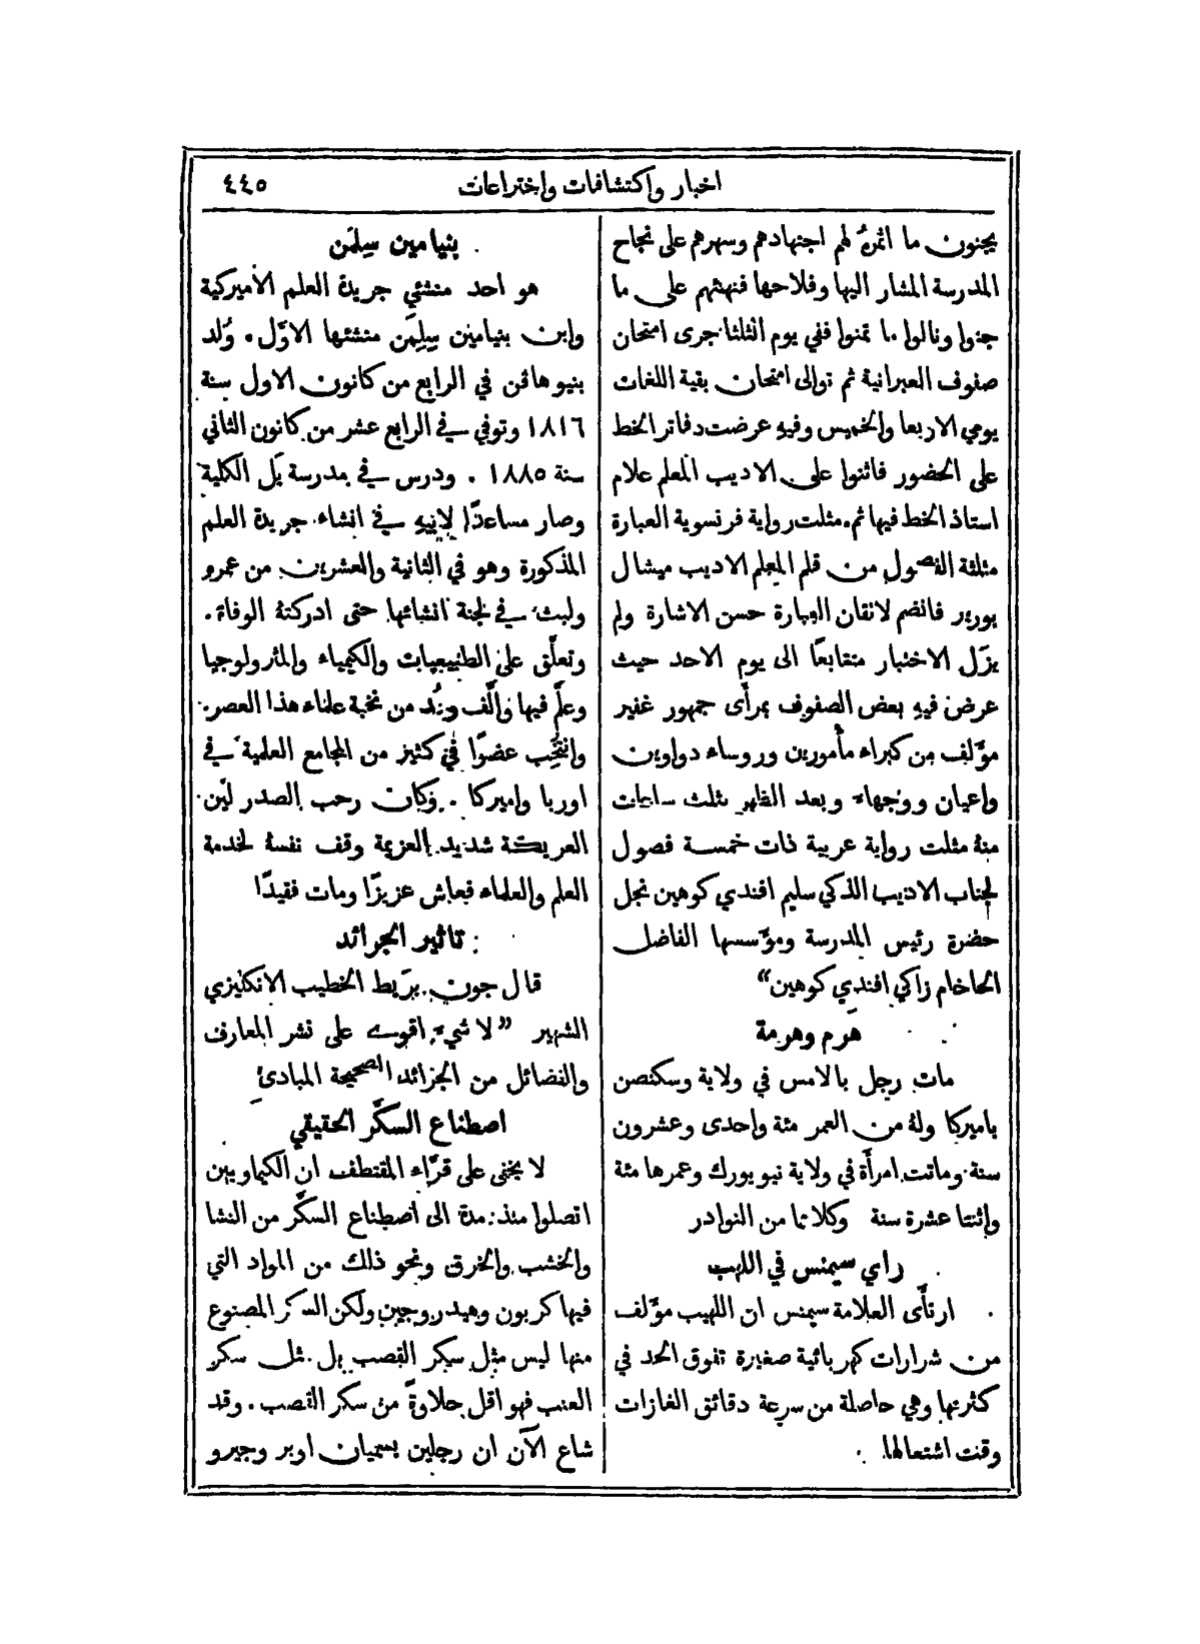 اخبار واكتشافات واختراعات
٤٤٥
يجنون ما اثمرهُ لهم اجتهادهم وسهرهم على نجاح
المدرسة المشار اليها وفلاحها فنهنئهم على ما
جنوا ونالوا ما تمنوا ففي يوم الثلثا جرى امتحان
صفوف العبرانية ثم توالى امتحان بقية اللغات
يومي الاربعا والخميس وفيهِ عرضت دفاتر الخط
على الحضور فاثنوا على الاديب المعلم علام
استاذ الخط فيها ثم مثلت رواية فرنسوية العبارة
مثلثة الفصول من قلم المعلم الاديب ميشال
بورير فانضم لاتقان العبارة حسن الاشارة ولم
يزَل الاختبار متتابعًا الى يوم الاحد حيث
عرض فيهِ بعض الصفوف بمرأى جمهور غفير
مؤلف من كبراء مأمورين وروساء دواوين
واعيان ووجهاء وبعد الظهر بثلث ساعات
منهُ مثلت رواية عربية ذات خمسة فصول
لجناب الاديب الذكي سليم افندي كوهين نجل
حضرة رئيس المدرسة ومؤسسها الفاضل
الحاخام زاكي افندي كوهين“
هَرِم وهرمة
مات رجل بالامس في ولاية وسكنصن
باميركا ولهُ من العمر مئة واحدى وعشرون
سنة وماتت امرأة في ولاية نيو يورك وعمرها مئة
واثنتا عشرة سنة وكلاهما من النوادر
راي سيمنس في اللهب
ارتأى العلامة سيمنس ان اللهيب مؤلف
من شرارات كهربائية صغيرة تفوق الحد في
كثرتها وهي حاصلة من سرعة دقائق الغازات
وقت اشتعالها
بنيامين سِلِمَن
هو احد منشئي جريدة العلم الاميركية
وابن بنيامين سِلِمَن منشئها الاوَّل. وُلد
بنيو هاڤن في الرابع من كانون الاول سنة
١٨١٦ وتوفي في الرابع عشر من كانون الثاني
سنة ١٨٨٥. ودرس في مدرسة يَل الكلية
وصار مساعدًا لابيهِ في انشاء جريدة العلم
المذكورة وهو في الثانية والعشرين من عمرهِ
ولبث في لجنة انشائها حتى ادركتهُ الوفاة.
وتعلَّق على الطبيعيات والكيمياء والمترولوجيا
وعلَّم فيها والَّف وعُد من نخبة علماء هذا العصر.
وانتُخِب عضوًا في كثير من المجامع العلمية في
اوربا واميركا. وكان رحب الصدر ليّن
العريكة شديد العزيمة وقف نفسهُ لخدمة
العلم والعلماء فعاش عزيزًا ومات فقيدًا
تاثير الجرائد
قال جون بريَط الخطيب الانكليزي
الشهير ”لا شيء اقوى على نشر المعارف
والفضائل من الجرائد الصحيحة المبادئ
اصطناع السكَّر الحقيقي
لا يخفى على قرَّاء المقتطف ان الكيماويين
اتصلوا منذ مدة الى اصطناع السكَّر من النشا
والخشب والخرق ونحو ذلك من المواد التي
فيها كربون وهيدروجين ولكن السكر المصنوع
منها ليس مثل سكر القصب بل مثل سكر
العنب فهو اقل حلاوةً من سكر القصب. وقد
شاع الآن ان رجلين يسميان اوبر وجيرو